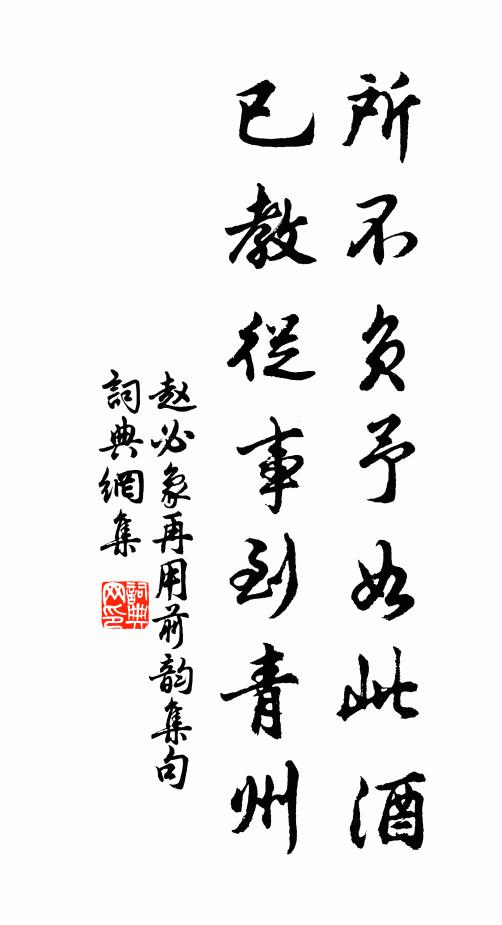 所不负予如此酒
已教從事到青州
赵必象再用前韵集句
詞典網集
詞典网印